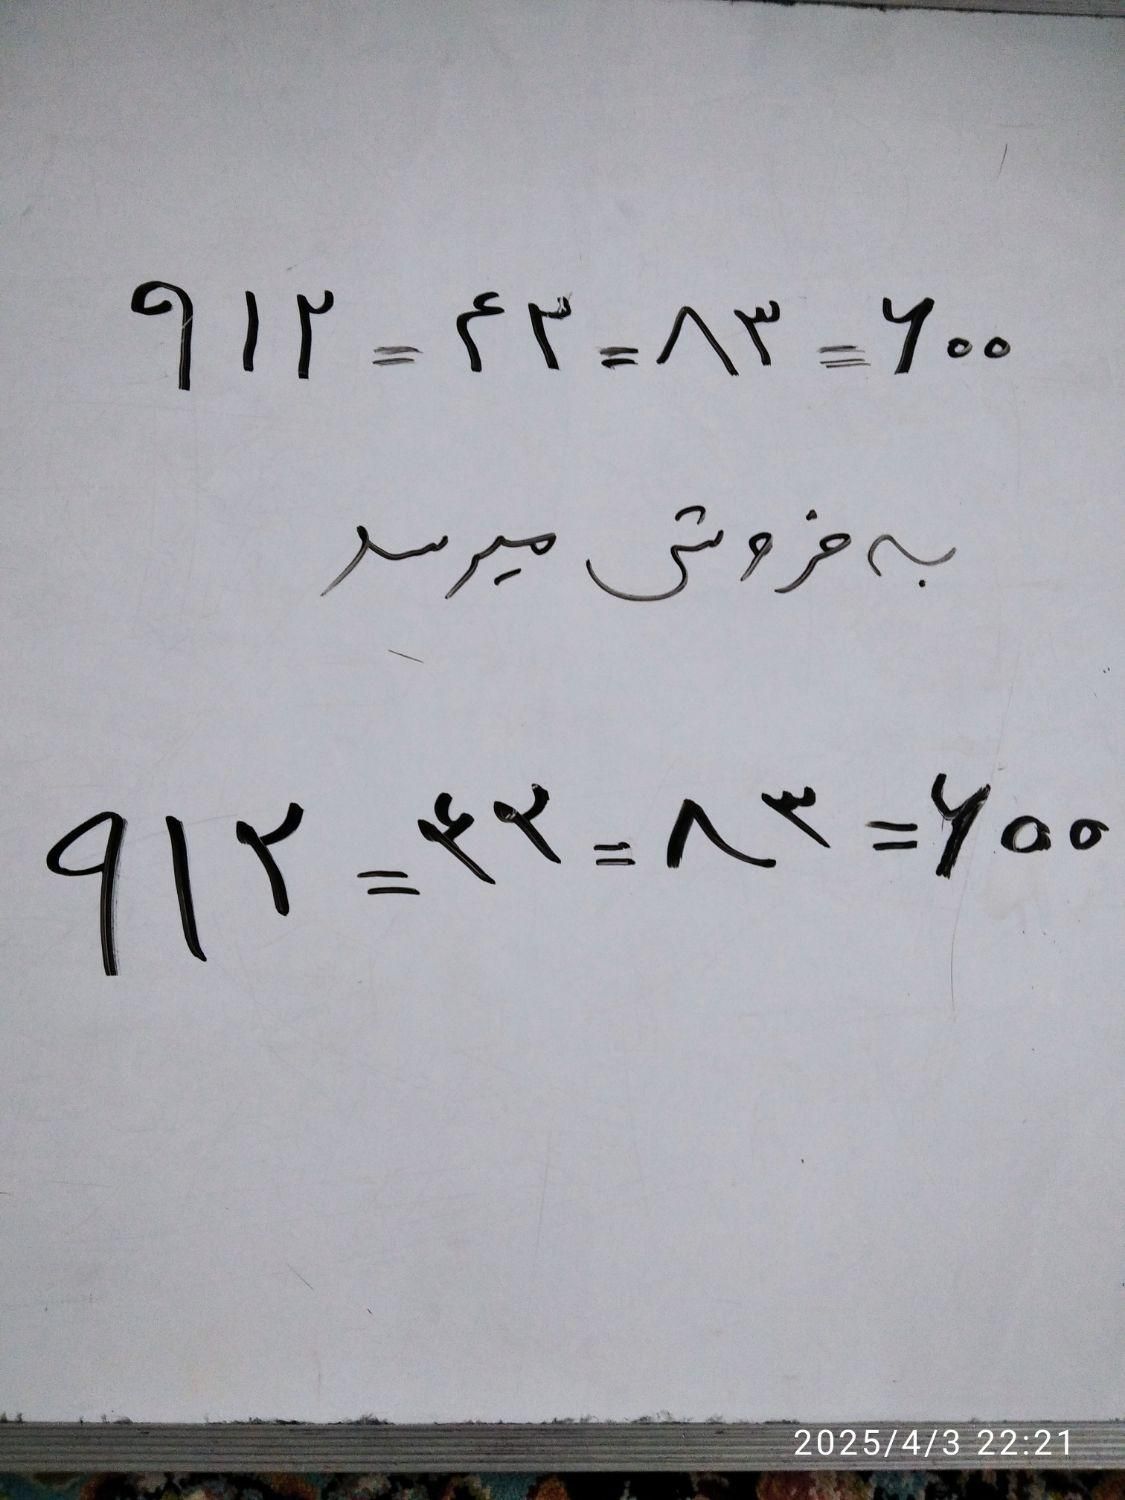 ۹۱۲ = ۴۲ = ۸۳ = ۶۰۰
به فروش میرسد
۹۱۲ = ۴۲ = ۸۳ = ۶۰۰
2025/4/3 22:21